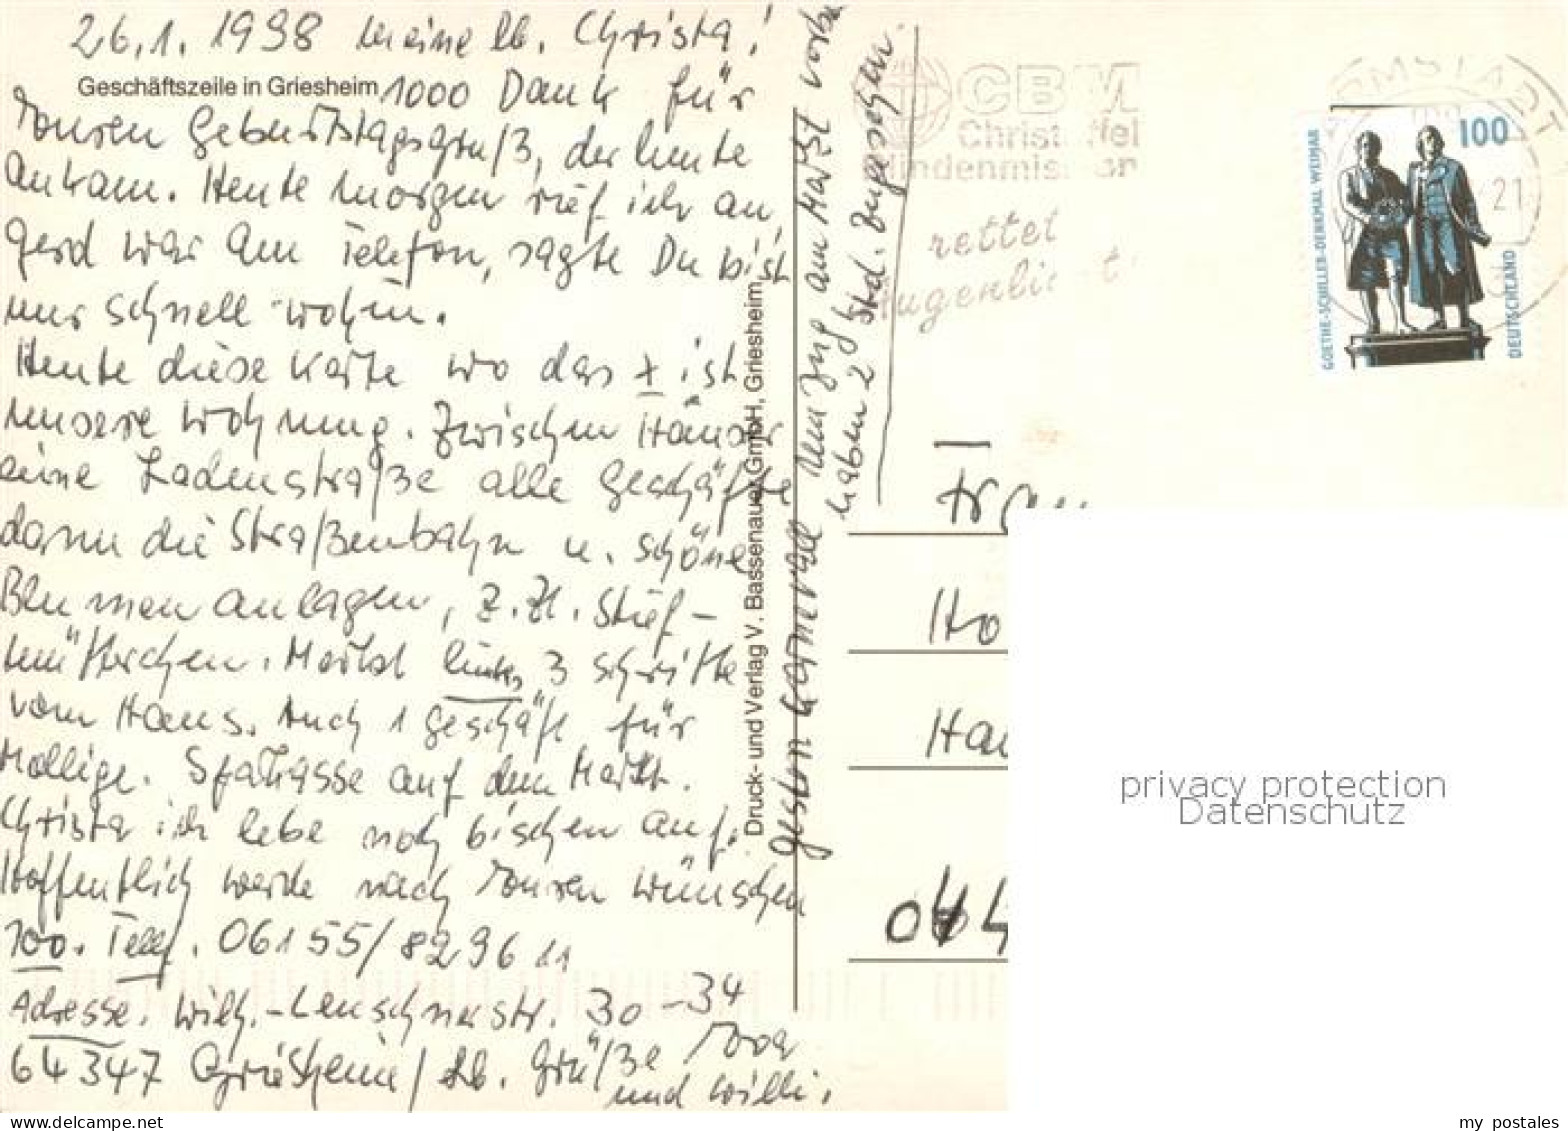 26.1.1998 meine lb. Christa!
Geschäftszeile in Griesheim
1000 Dank für
Euren Geburtstagsgruß, der heute
ankam. Heute morgen rief ich an,
Gerd war am Telefon, sagte Du bist
nur schnell wohin.
Heute diese Karte wo das x ist
unsere Wohnung. Zwischen Häuser
eine Ladenstraße alle Geschäfte
dann die Straßenbahn u. schöne
Blumenanlagen, z.Zt. Stief-
mütterchen. Markt links 3 schritte
vom Haus. Auch 1 Geschäft für
Mollige. Sparkasse auf dem Markt.
Christa ich lebe noch bischen auf.
Hoffentlich werde nach Euren wünschen
100. Telf. 06155/829611
Adresse. Wilh.-Leuschnerstr. 30-34
64347 Griesheim/ lb. Grüße
und Willi.
Druck- und Verlag V. Bassenauer GmbH, Griesheim
gestern Karneval dem Zug am Markt vorbei
haben 2 Std. zugesehen.
CBM
Christoffel
Blindenmission
rettet
Augenlicht
21
100
GOETHE-SCHILLER-DENKMAL WEIMAR
DEUTSCHLAND
Frau
Ho
Ha
privacy protection
Datenschutz
www.delcampe.net
my_postales